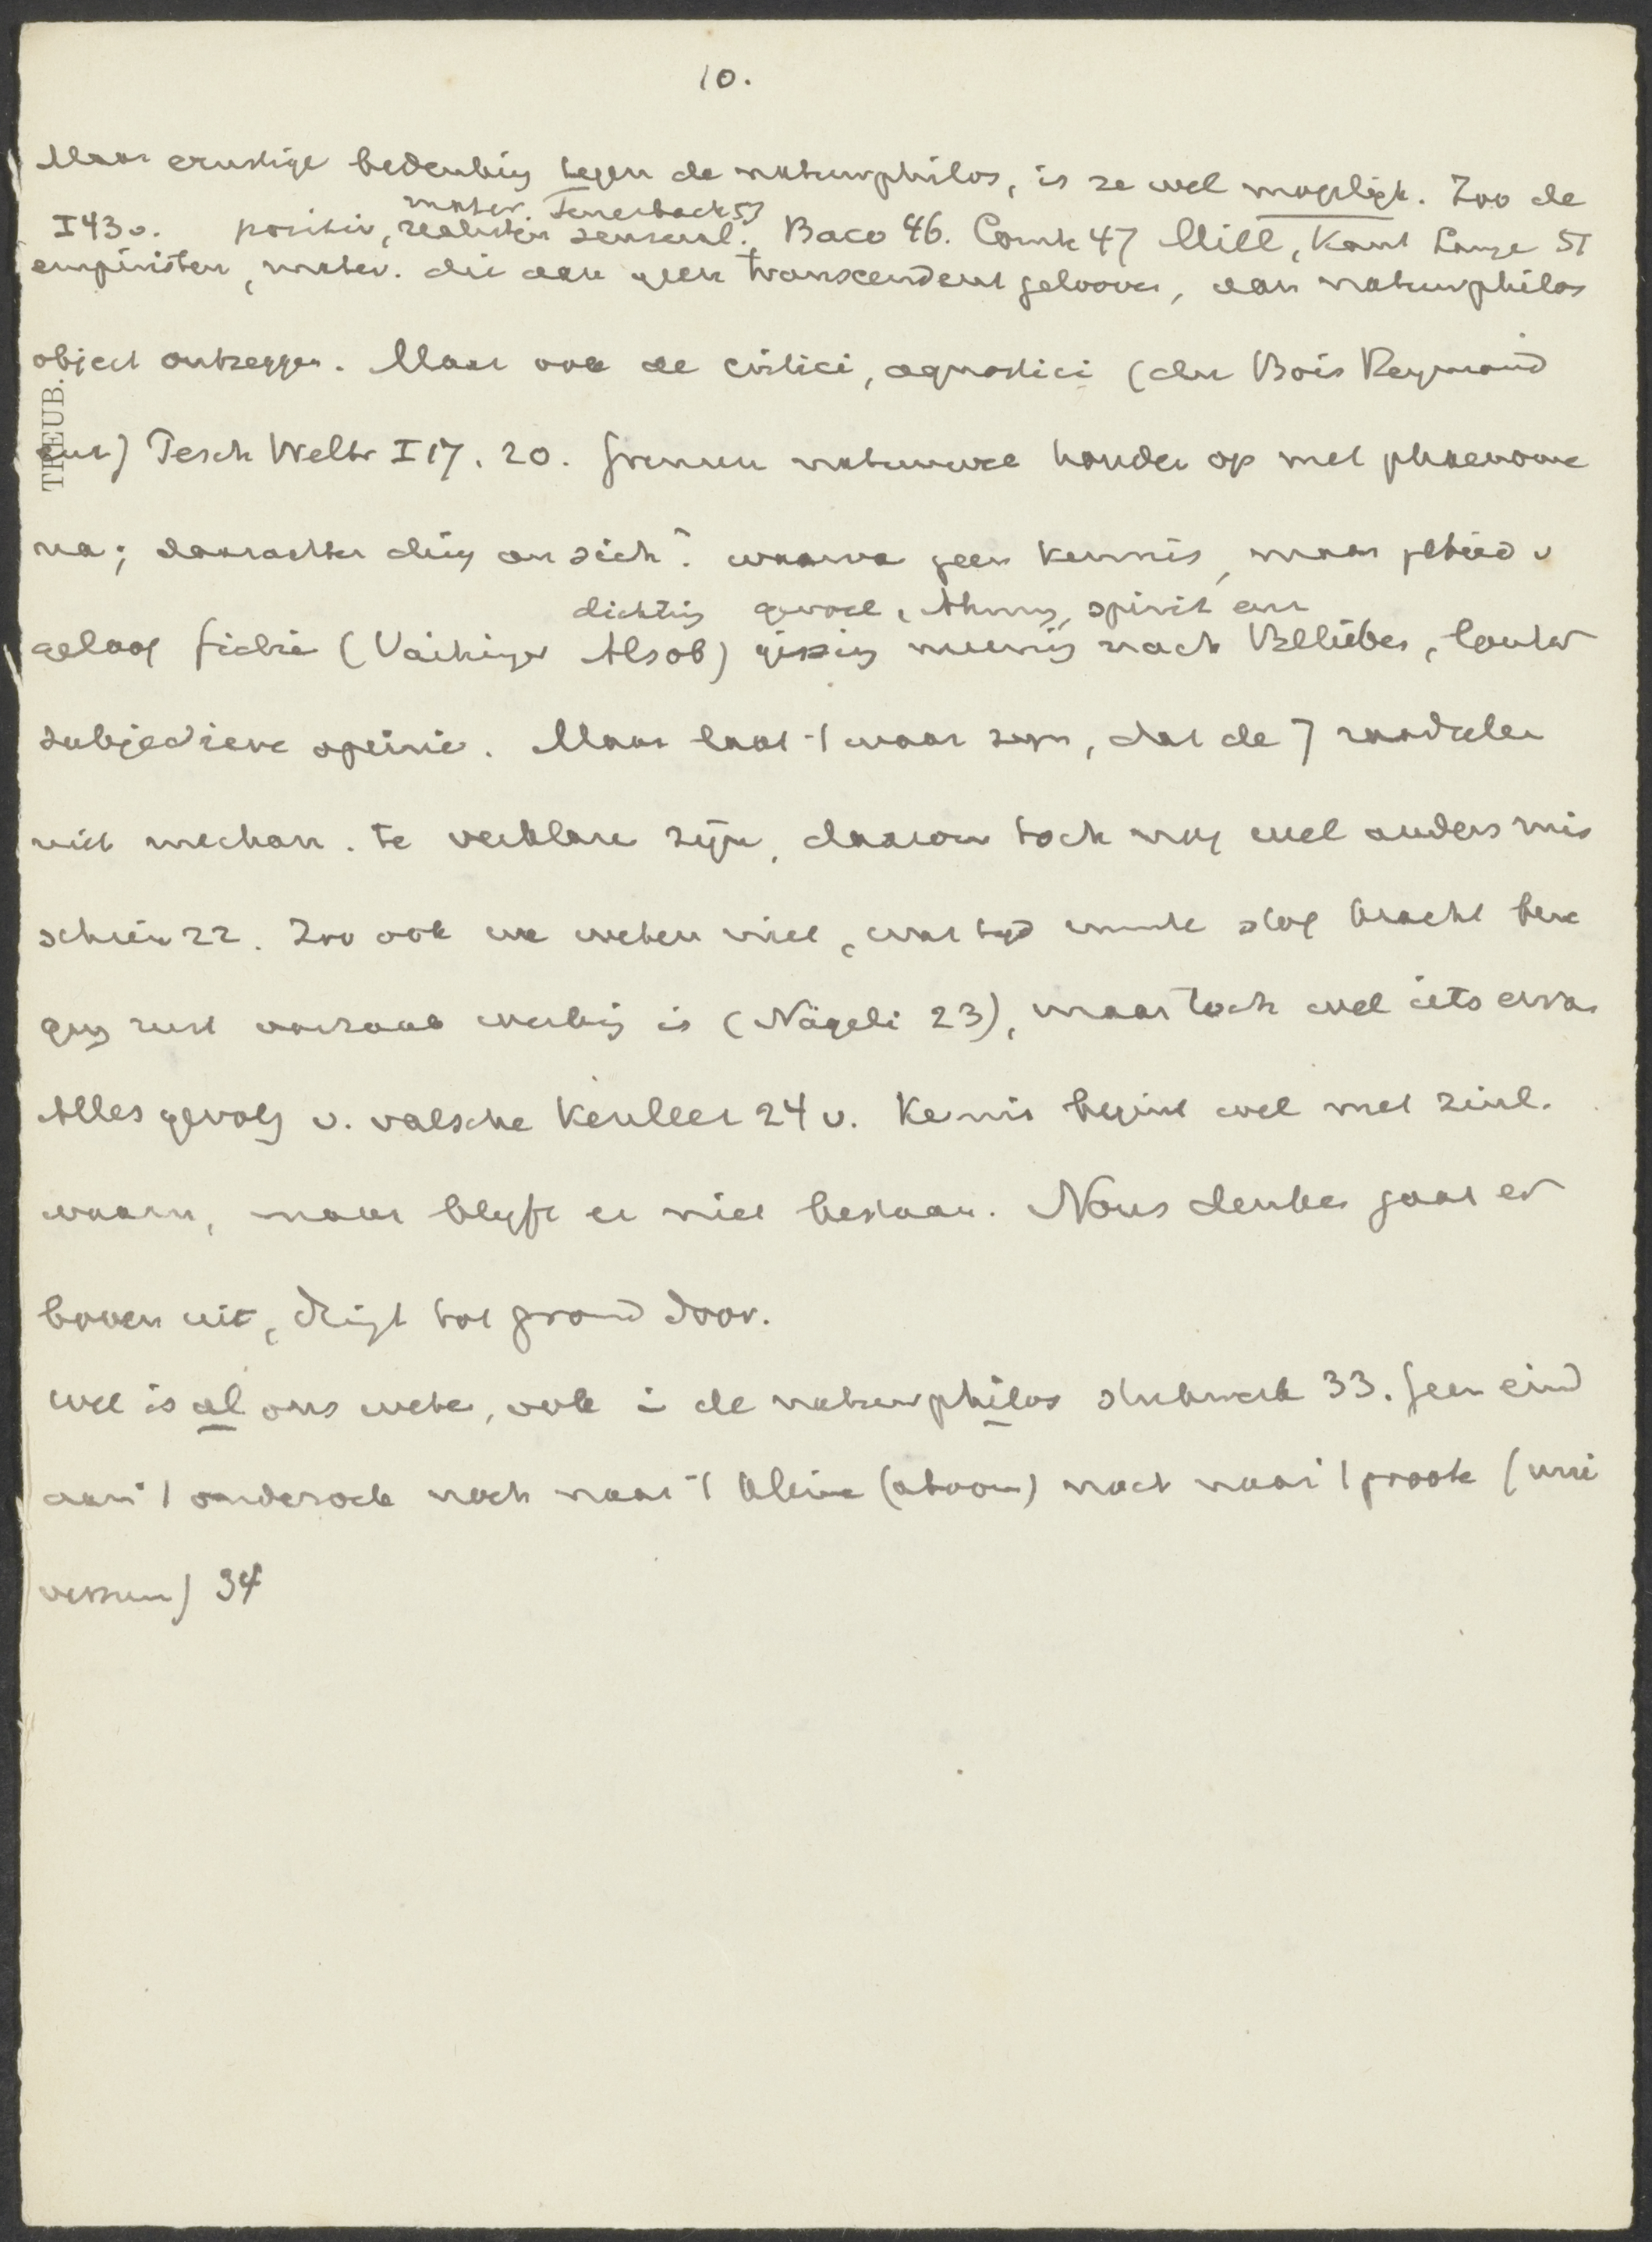 10.
Maar ernstige bedenking tegen de naturphilos, is ze wel mogelijk. Zoo de
mater. Feuerbach 53
I 43 v. positiv, realisten sensual. Baco 46. Comte 47 Mill, Kant Lange 51
empiristen, mater. die aan geen transcendent gelooven, aan naturphilos
object ontzeggen. Maar ook de critici, agnostici (du Bois Reymond
enz) Pesch Weltr I 17. 20. Grenzen natuurwe houden op met phaenome
TREUB.
na; daarachter ding an sich? waarva geen kennis, maar gebied v
dichting gevoel, Ahnung, spirit enz
geloof fictie (Vaihinger Als ob) gissing meening nach Belieben, louter
subjectieve opinie. Maar laat 't waar zijn, dat de 7 raadselen
niet mechan. te verklare zijn, daarom toch nog wel anders mis
schien 22. Zoo ook we weten niet, wat tijd ruimte stof kracht bewe
ging rust oorzaak werking is (Nägeli 23), maar toch wel iets ervan
Alles gevolg v. valsche Kenleer 24 v. Kennis begint wel met zinl.
waarn, maar blijft er niet bestaan. Nous denken gaat er
boven uit, dringt tot grond door.
Wel is al ons weten, ook in de naturphilos stukwerk 33. Geen eind
aan 't onderzoek noch naar 't kleine (atoom) noch naar 't groote (uni
versum) 34